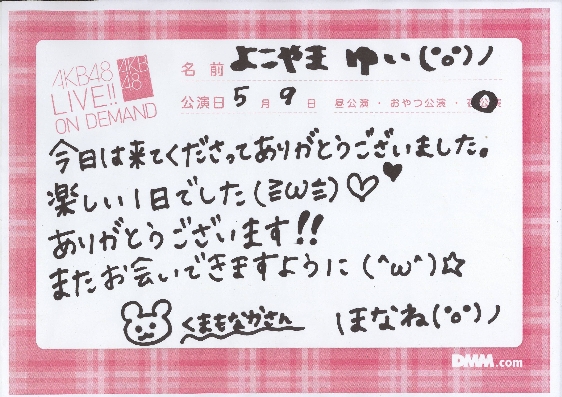 AKB48
LIVE!!
ON DEMAND
AKB
48
名前 よこやま ゆい(°o°)ノ
公演日 5月9日 昼公演・おやつ公演・
今日は来てくださってありがとうございました。
楽しい1日でした(≧ω≦)♡♥
ありがとうございます!!
またお会いできますように(^ω^)☆
くまもなかさん
ほなね(°o°)ノ
DMM.com